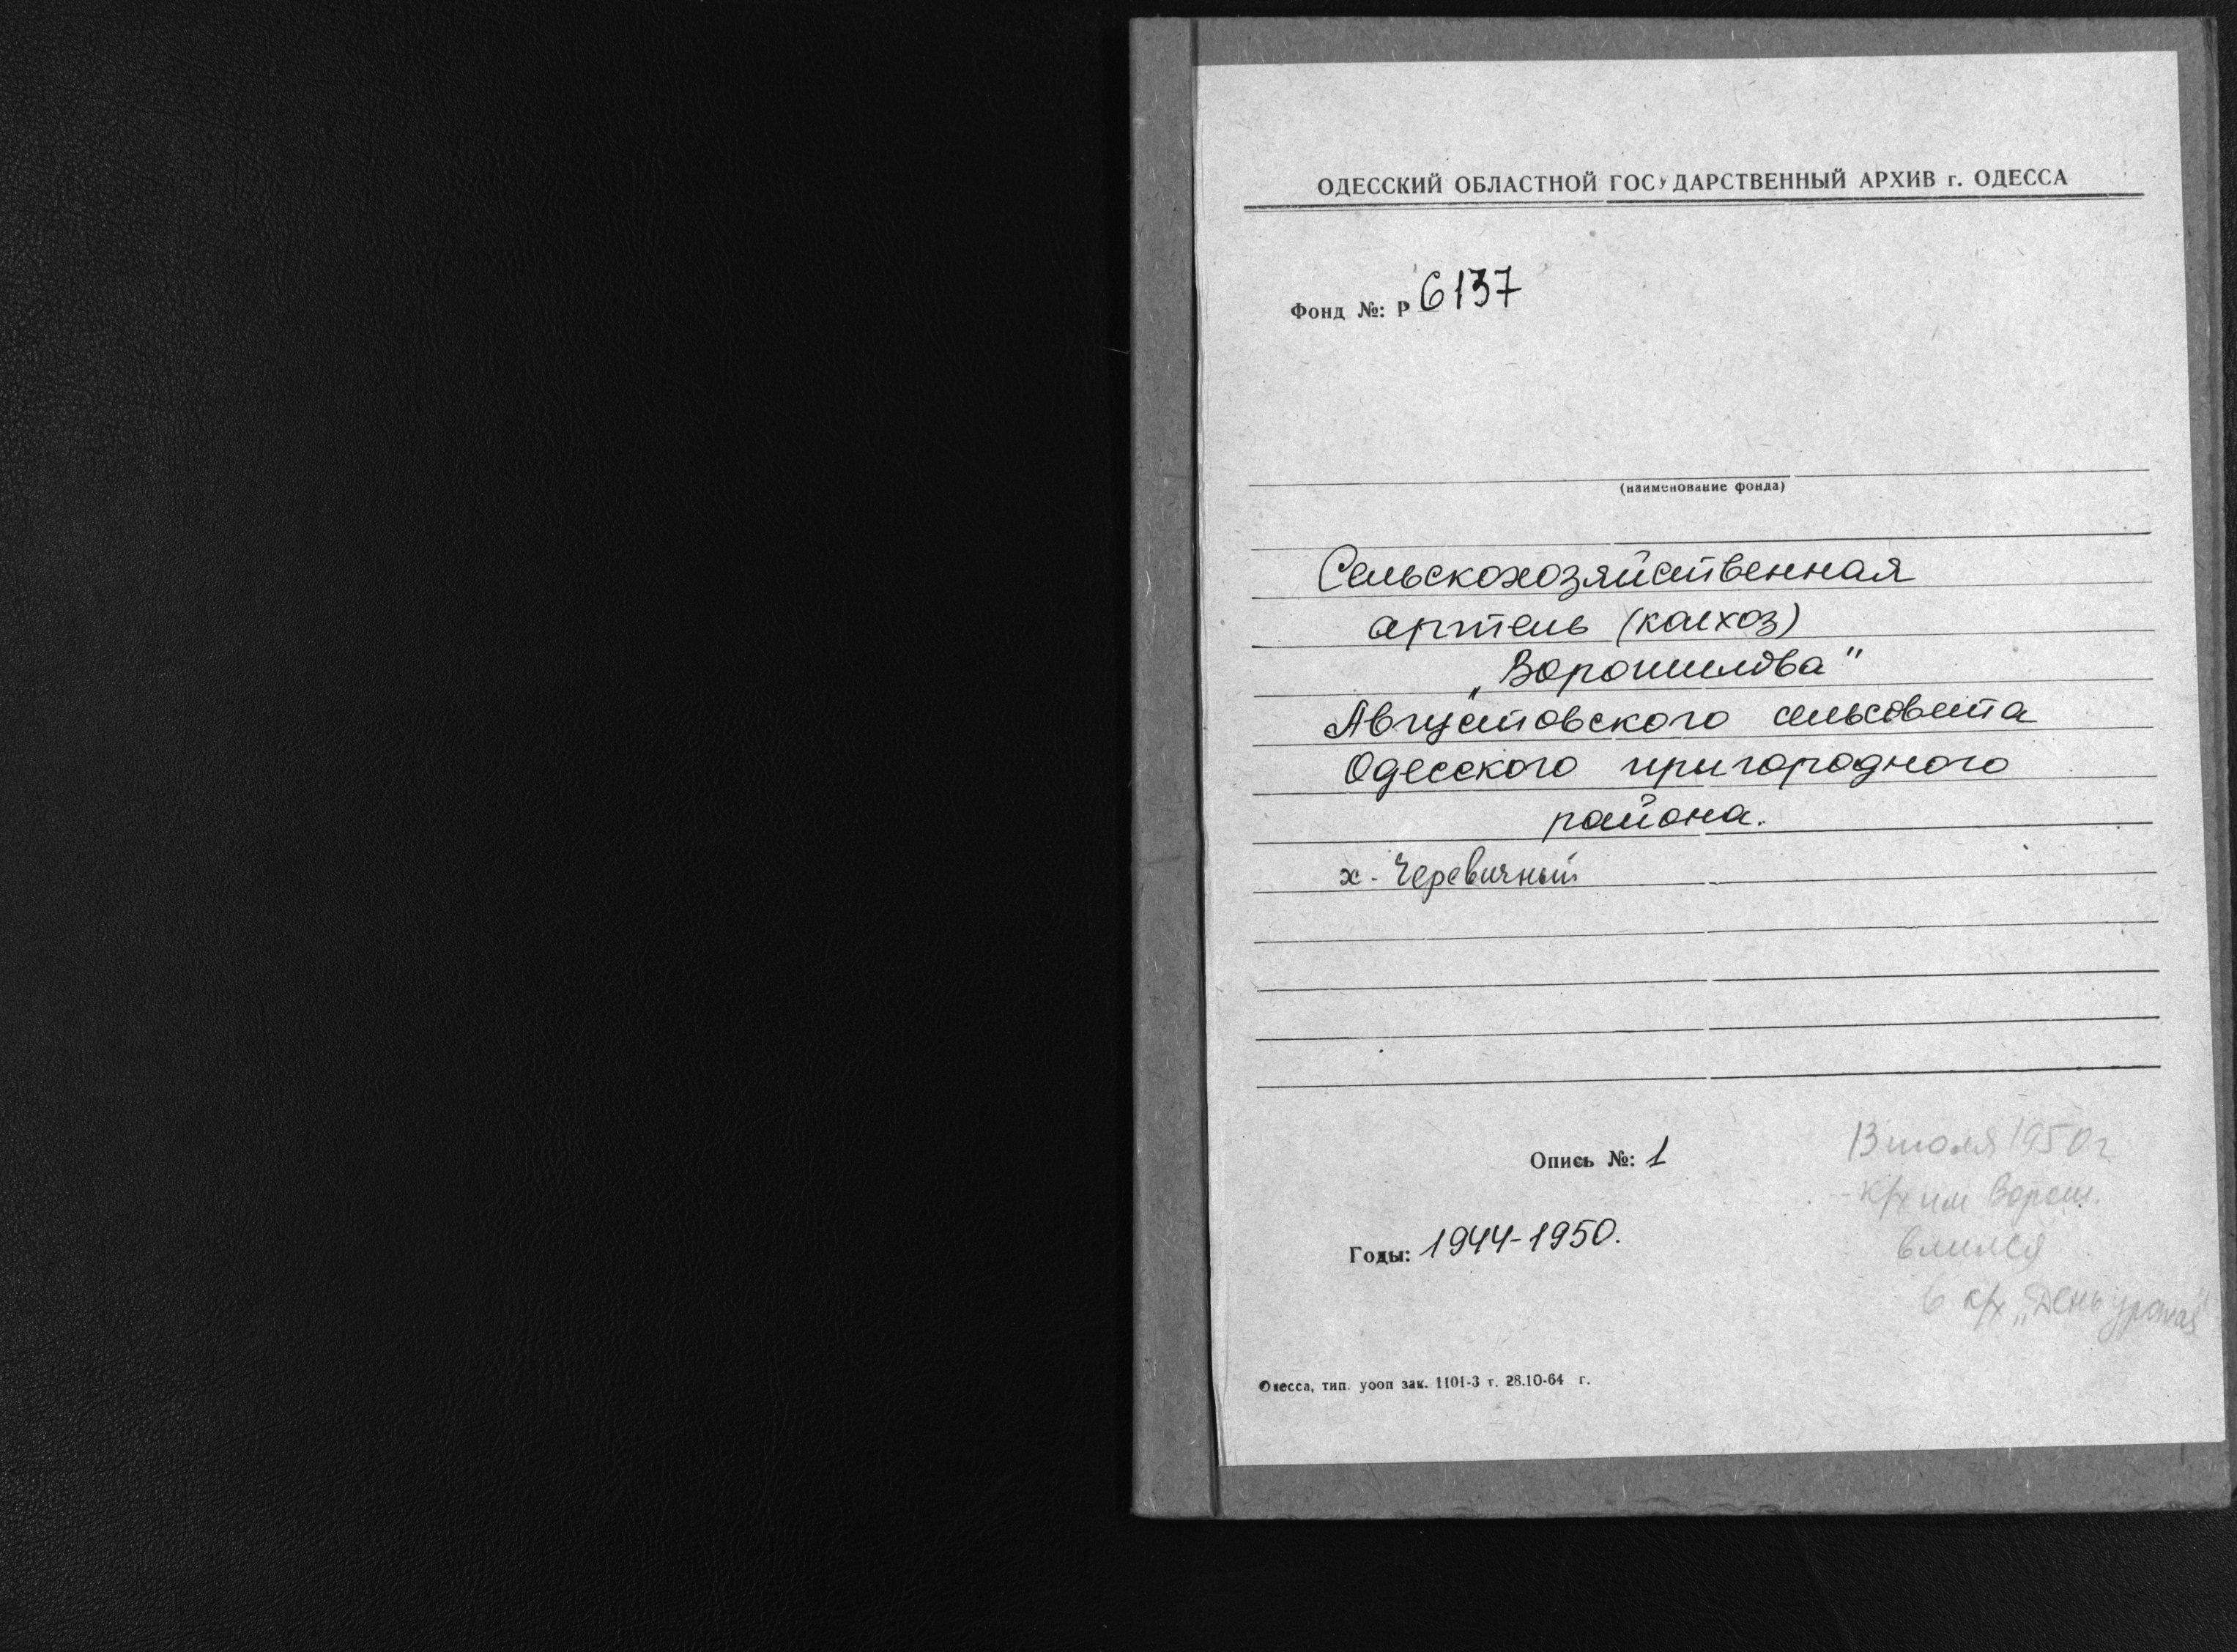 ОДЕССКИЙ ОБЛАСТНОЙ ГОСУДАРСТВЕННЫЙ АРХИВ г. ОДЕССА
Фонд №: Р 6137
(наименование фонда)
Сельскохозяйственная
артель (колхоз)
„Ворошилова"
Августовского сельсовета
Одесского пригородного
района.
х. Черевичный
Опись №: 1
Годы: 1944-1950.
13 июля 1950 г
к/х им Ворош.
влился
в к/х „День урожая"
Одесса, тип. уооп зак. 1101-3 т. 28.10-64 г.